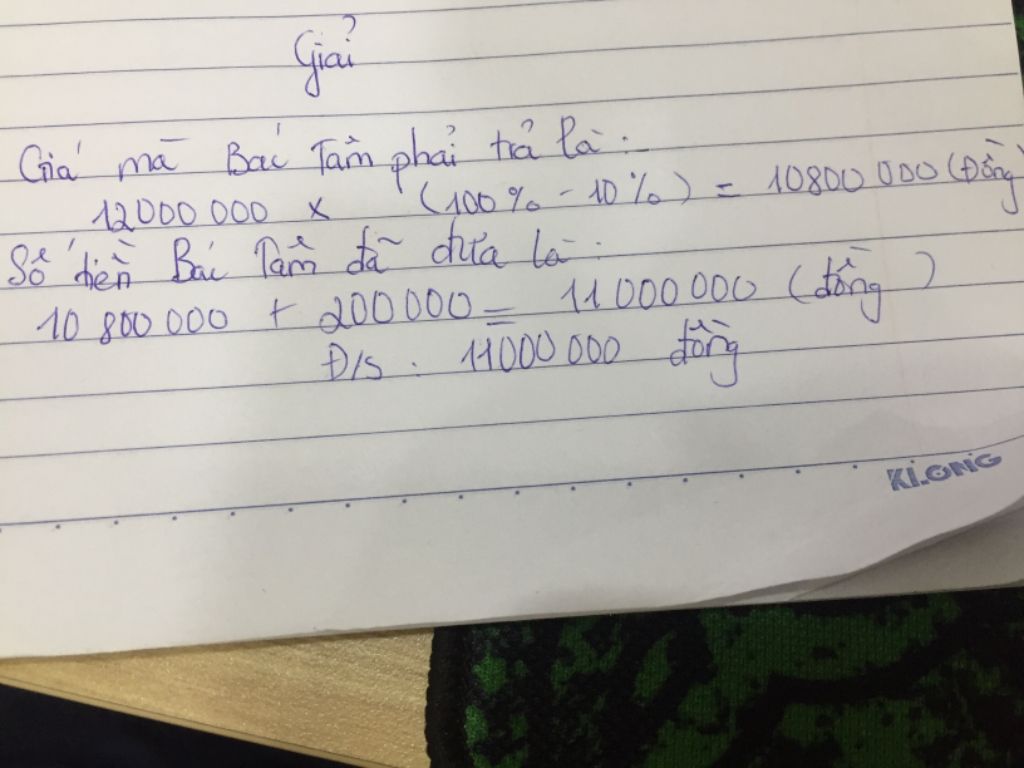 Giải
Giá mà Bác Tâm phải trả là :
12000 000 x (100% - 10%) = 10800 000 (Đồng)
Số tiền Bác Tâm đã đưa là :
10 800 000 + 200 000 = 11 000 000 (đồng)
Đ/s : 11000 000 đồng
KLONG